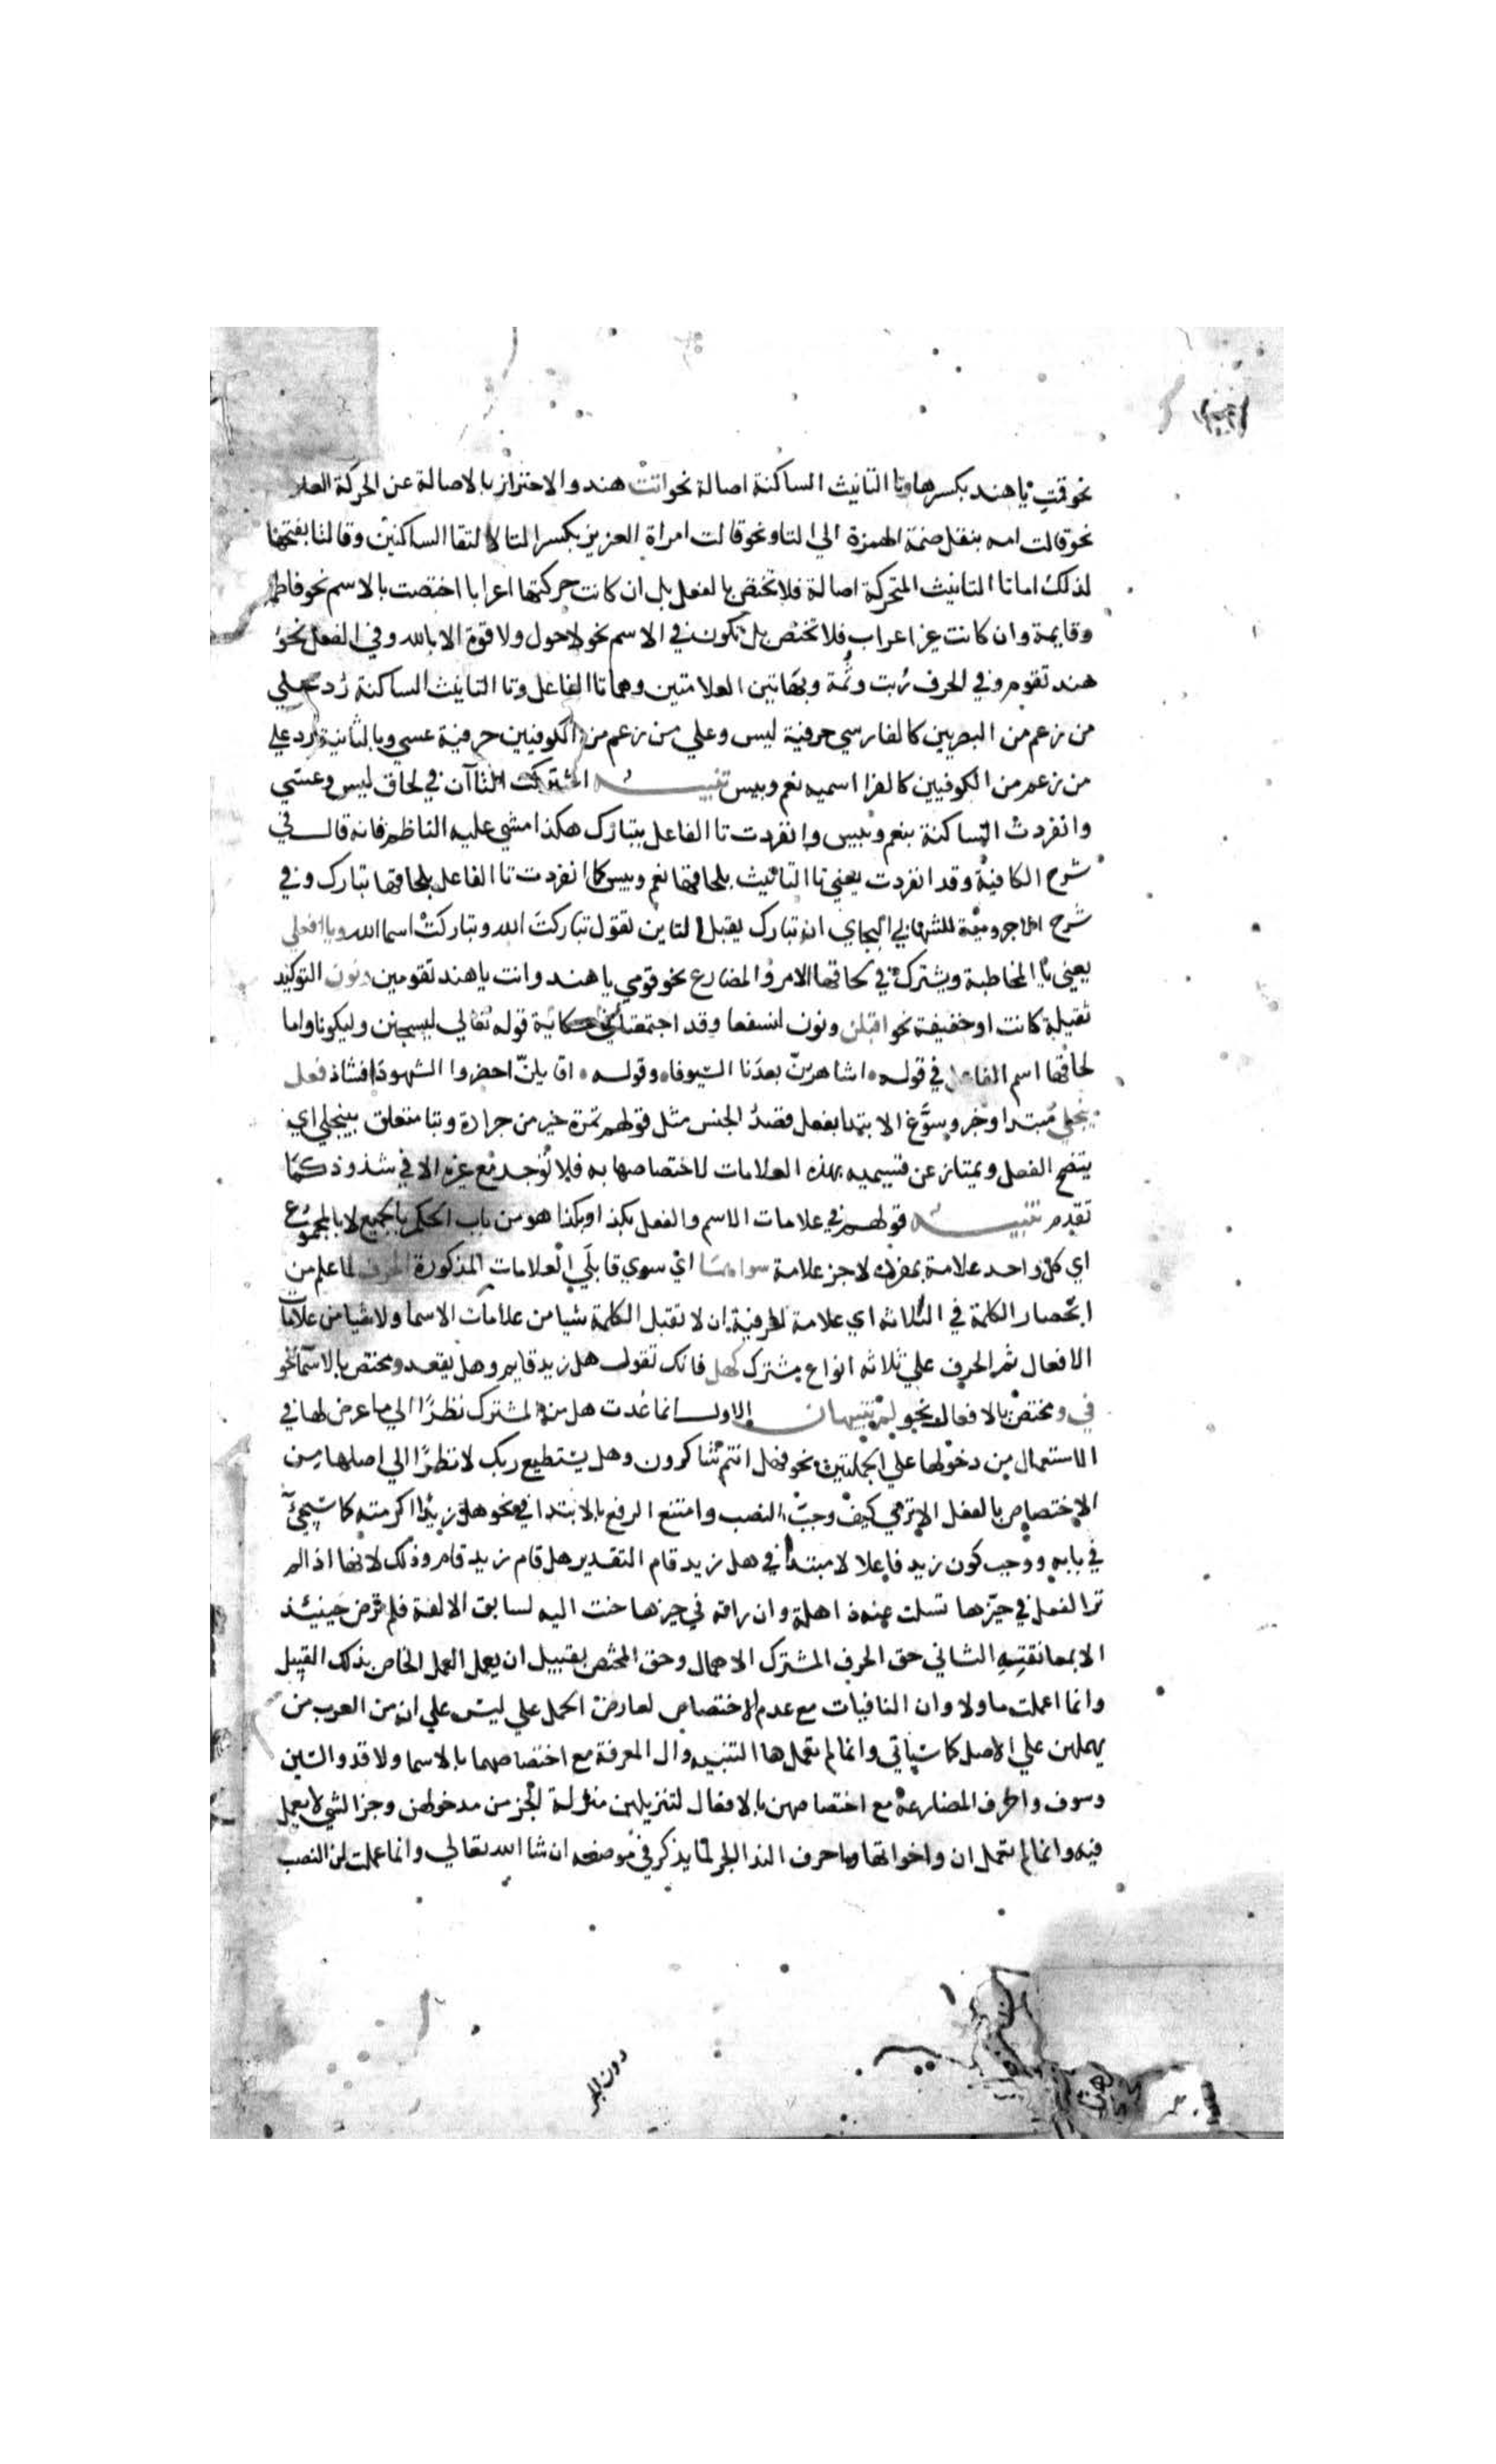 نحو قمتِ يا هند بكسرها وتا التانيث الساكنة اصالة نحو اتتْ هند والاحتراز بالاصالة عن الحركة العا
نحو قالت امه بنقل ضمة الهمزة الي التا ونحو قالت امراة العزيز بكسر التا لالتقا الساكنين وقالتا بفتحها
لذلك اما تا التانيث المتحركة اصالة فلا تختص بالفعل بل ان كانت حركتها اعرابا اختصت بالاسم نحو فاطمة
وقايمة وان كانت غير اعراب فلا تختص بل تكون في الاسم نحو لا حول ولا قوة الا بالله وفي الفعل نحو
هند تقوم وفي الحرف رُبت وثُمة وبهاتين العلامتين وهما تا الفاعل وتا التانيث الساكنة رُد علي
من زعم من البصريين كالفارسي حرفية ليس وعلي من زعم من الكوفيين حرفية عسي وبالثانية رد علي
من زعم من الكوفيين كالفرا اسميه نعم وبيس تنبيه اشتركت التاآن في لحاق ليس وعسي
وانفردت الساكنة بنعم وبيس وانفردت تا الفاعل بتبارك هكذا مشي عليه الناظم فانه قال في
شرح الكافية وقد انفردت يعني تا التانيث بلحاقها نعم وبيس كما انفردت تا الفاعل بلحاقها تبارك وفي
شرح الاجرومية للشهاب البجاي ان تبارك يقبل التاين تقول تباركتَ الله وتباركتْ اسما الله ويا افعلي
يعني يا المخاطبة ويشترك في لحاقها الامر والمضارع نحو قومي يا هند وانت يا هند تقومين ونون التوكيد
ثقيلة كانت او خفيفة نحو اقبلن ونون لنسفعا وقد اجتمعتا في حكاية قوله تعالي ليسجنن وليكونا واما
لحاقها اسم الفاعل في قوله اشاهرنّ بعدنا السيوفا وقوله اقايلنّ احضروا الشهودا فشاذ فعل
ينجلي مبتدا وخبر وسوَّغ الابتدا بفعل قصدُ الجنس مثل قولهم تمرة خير من جرادة وبتا متعلق بينجلي اي
يتضح الفعل ويمتاز عن قسيميه بهذه العلامات لاختصاصها به فلا توجد مع غيره الا في شذوذ كما
تقدم تنبيه قولهم في علامات الاسم والفعل بكذا وبكذا هو من باب الحكم بالجميع لا بالمجموع
اي كل واحد علامة بمفرده لا جز علامة سواهما اي سوي قابلَي العلامات المذكورة الحرف لما علم من
انحصار الكلمة في الثلاثه اي علامة الحرفية ان لا تقبل الكلمة شيا من علامات الاسما ولا شيا من علامات
الافعال ثم الحرف علي ثلاثه انواع مشترك كهل فانك تقول هل زيد قايم وهل يقعد ومختص بالاسما نحو
في ومختص بالافعال نحو لم تنبيهان الاول انما عُدت هل من المشترك نظرًا الي ما عرض لها في
الاستعمال من دخولها علي الجملتين نحو فهل انتم شاكرون وهل يستطيع ربك لا نظرًا الي اصلها من
الاختصاص بالفعل الا تري كيف وجب النصب وامتنع الرفع بالابتدا في نحو هل زيدًا اكرمته كما سيجيء
في بابه ووجب كون زيد فاعلا لا مبتدا في هل زيد قام التقدير هل قام زيد قام وذلك لانها اذا لم
تر الفعل في حيّزها تسلت عنه ذاهلة وان راته في حيزها حنت اليه لسابق الالفة فلم ترض حينيذ
الا بمعانقته الثاني حق الحرف المشترك الاهمال وحق المختص بقبيل ان يعمل العمل الخاص بذلك القبيل
وانما اعملت ما ولا وان النافيات مع عدم الاختصاص لعارض الحمل علي ليس علي ان من العرب من
يهملهن علي الاصل كما سياتي وانما لم تعمل ها التنبيه وال المعرفة مع اختصاصهما بالاسما ولا قد والسين
وسوف واحرف المضارعة مع اختصاصهن بالافعال لتنزيلهن منزلة الجز من مدخولهن وجز الشي لا يعمل
فيه وانما لم تعمل ان واخواتها واحرف الندا الجر لما يذكر في موضعه ان شا الله تعالي وانما عملت لن النصب
دون الجر